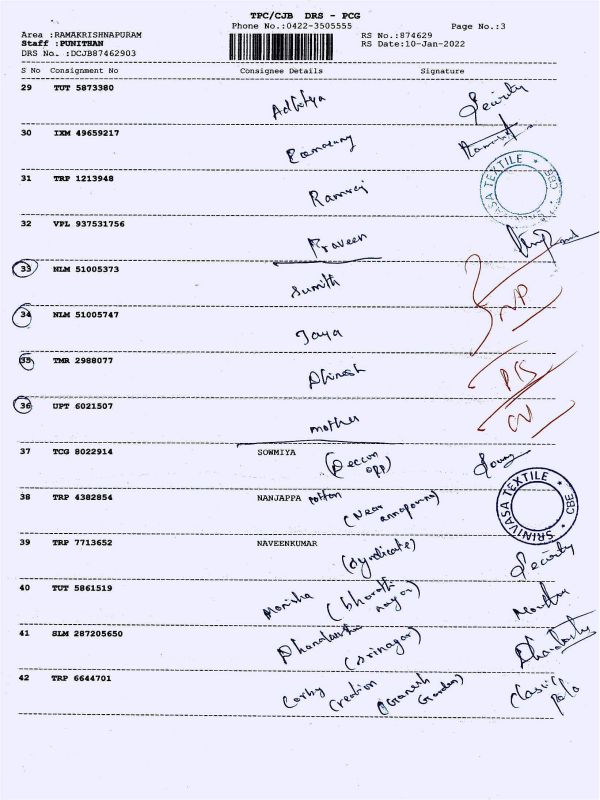 TPC/CJB DRS - PCG
Phone No.:0422-3505555 Page No.:3
Area :RAMAKRISHNAPURAM RS No.:874629
Staff :PUNITHAN RS Date:10-Jan-2022
DRS No. :DCJB87462903
S No Consignment No Consignee Details Signature
29 TUT 5873380 Security
30 IXM 49659217
31 TRP 1213948 Ramraj
32 VPL 937531756 Praveen
33 NLM 51005373 Sumith
34 NLM 51005747 Jaya
35 TMR 2988077 Dhinesh
36 UPT 6021507 mother
37 TCG 8022914 SOWMIYA (Deccan opp)
38 TRP 4382854 NANJAPPA cotton (Near annapoorna) SRINIVASA TEXTILE * CBE *
39 TRP 7713652 NAVEENKUMAR (syndicate) Security
40 TUT 5861519 Monisha (bharathi nagar)
41 SLM 287205650 (srinagar)
42 TRP 6644701 Creation (Ganesh Garden) Classic Polo